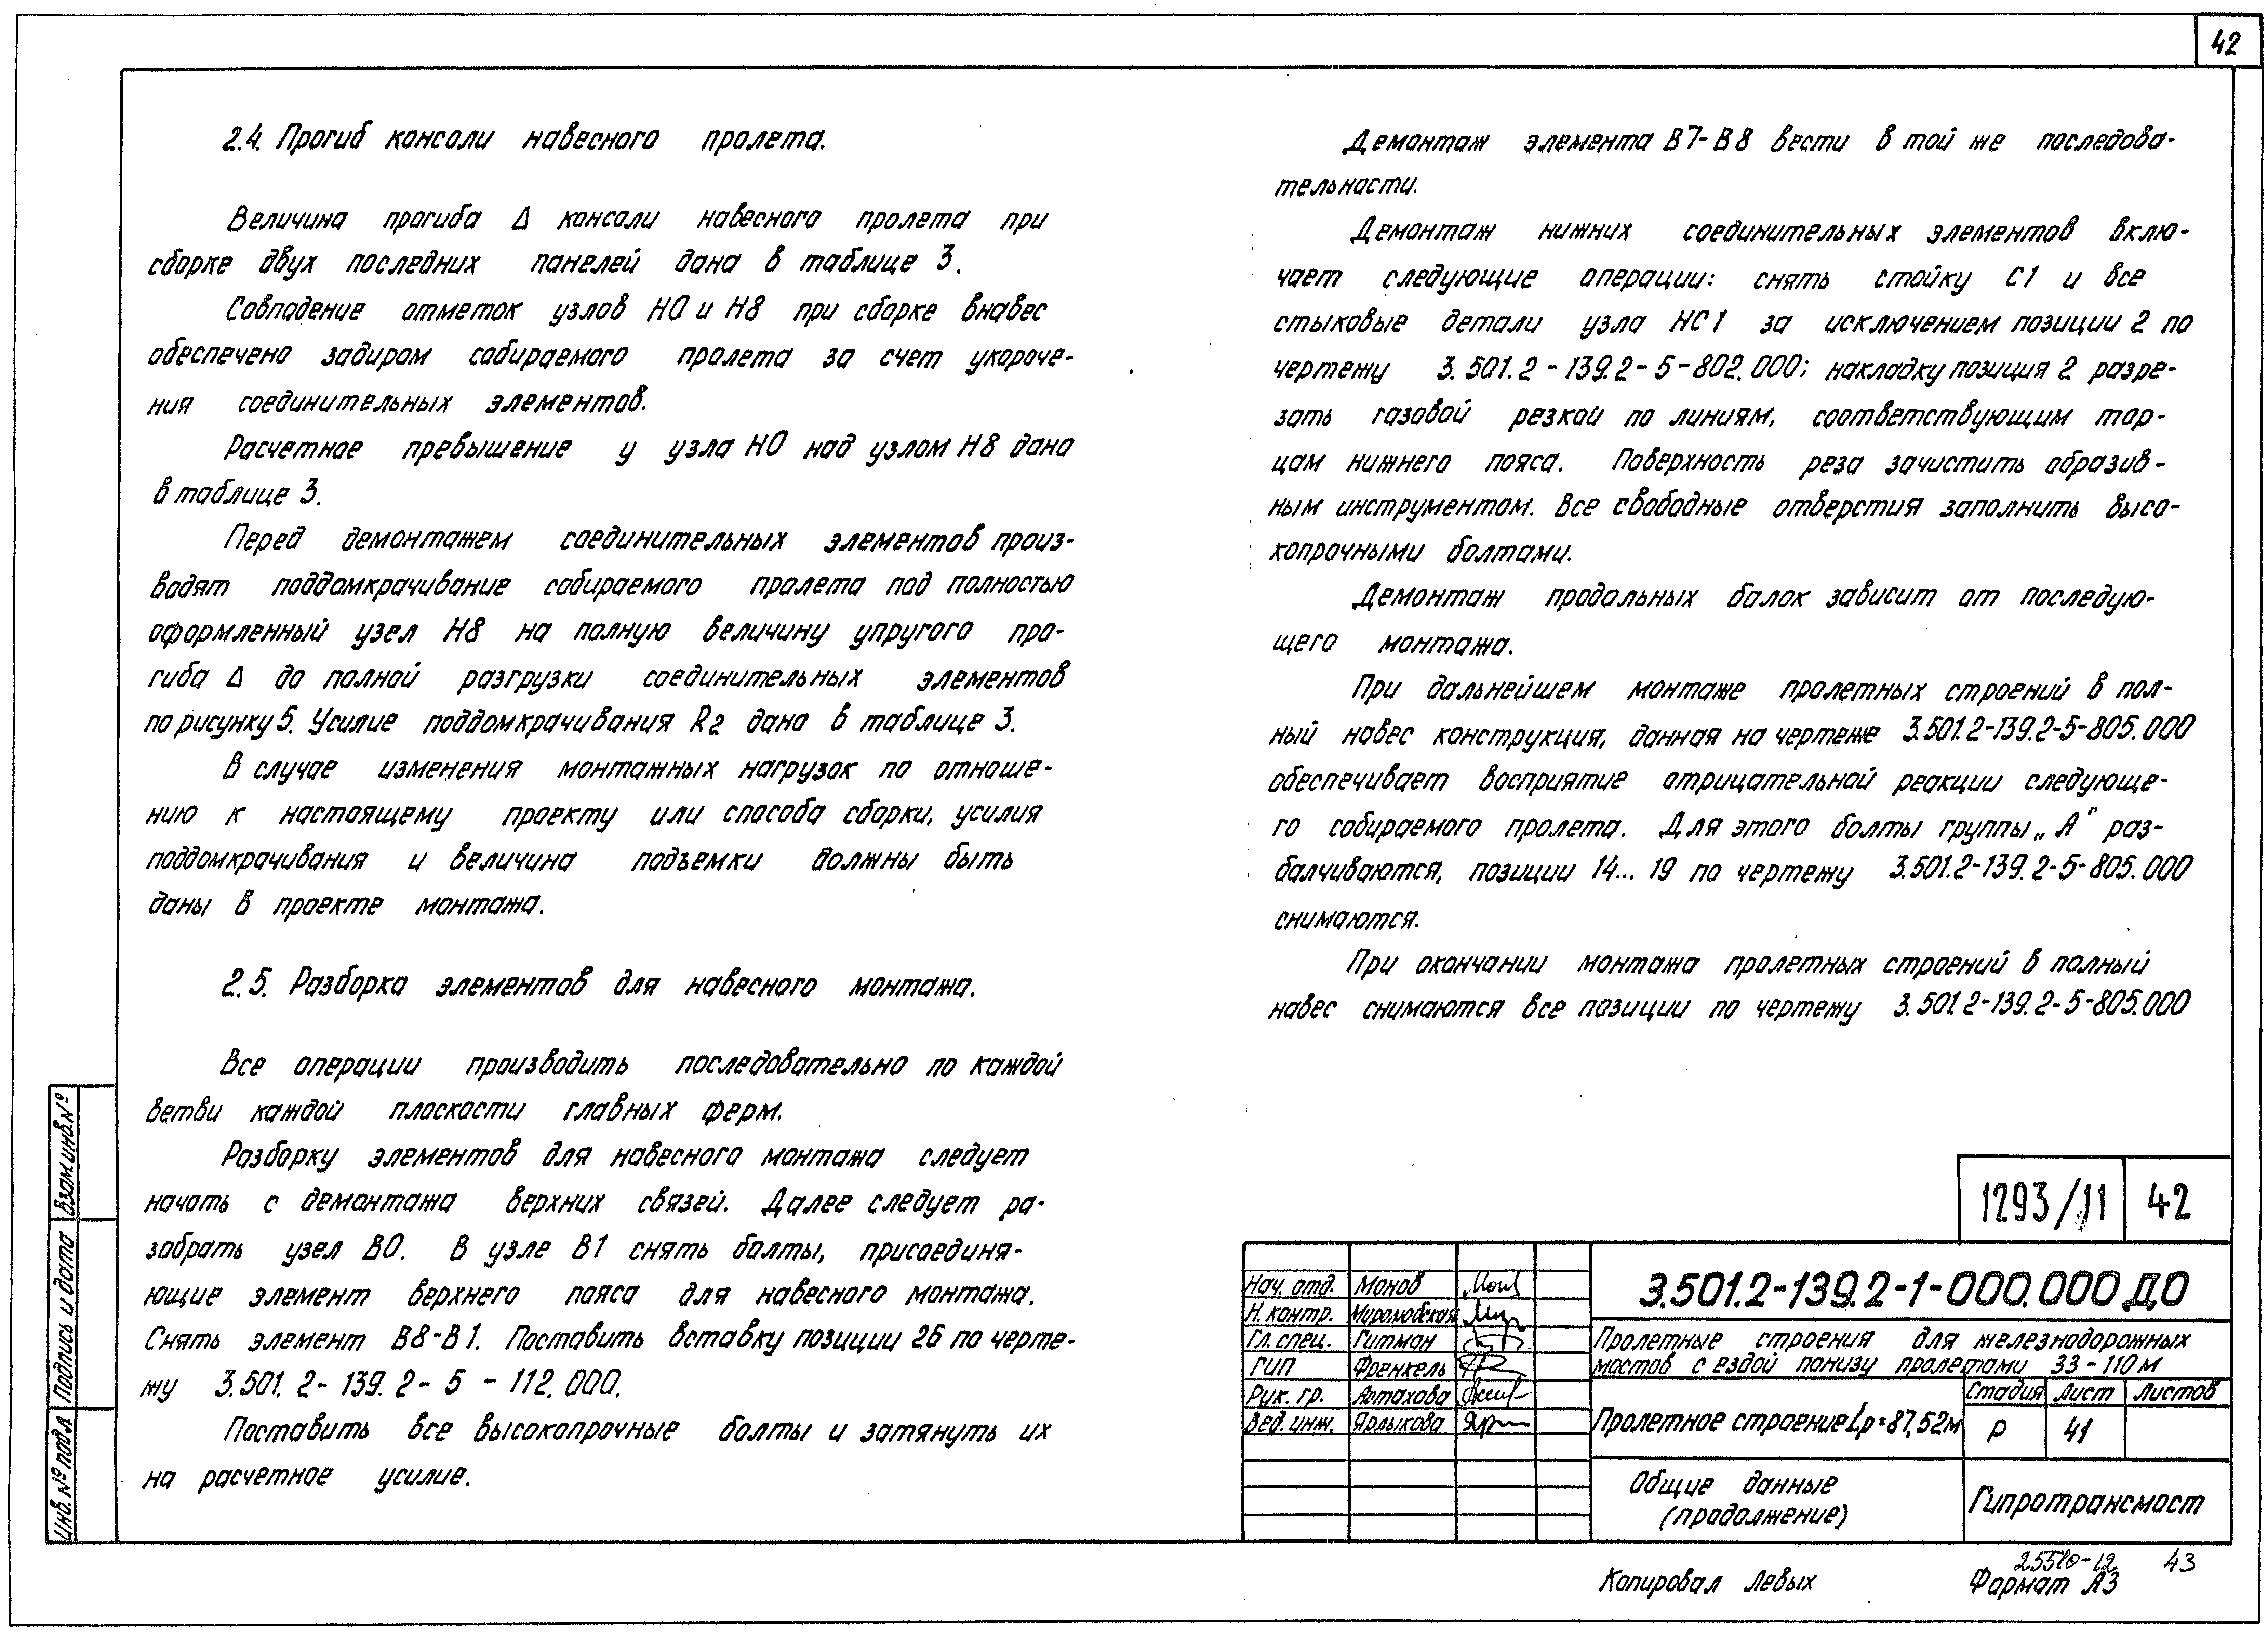 42
2.4. Прогиб консоли навесного пролета.
Величина прогиба Δ консоли навесного пролета при
сборке двух последних панелей дана в таблице 3.
Совпадение отметок узлов Н0 и Н8 при сборке внавес
обеспечено задиром собираемого пролета за счет укороче-
ния соединительных элементов.
Расчетное превышение у узла Н0 над узлом Н8 дано
в таблице 3.
Перед демонтажем соединительных элементов произ-
водят поддомкрачивание собираемого пролета под полностью
оформленный узел Н8 на полную величину упругого про-
гиба Δ до полной разгрузки соединительных элементов
по рисунку 5. Усилие поддомкрачивания R2 дано в таблице 3.
В случае изменения монтажных нагрузок по отноше-
нию к настоящему проекту или способа сборки, усилия
поддомкрачивания и величина подъемки должны быть
даны в проекте монтажа.
2.5. Разборка элементов для навесного монтажа.
Все операции производить последовательно по каждой
ветви каждой плоскости главных ферм.
Разборку элементов для навесного монтажа следует
начать с демонтажа верхних связей. Далее следует ра-
забрать узел В0. В узле В1 снять болты, присоединя-
ющие элемент верхнего пояса для навесного монтажа.
Снять элемент В8-В1. Поставить вставку позиции 26 по черте-
жу 3.501.2-139.2-5-112.000.
Поставить все высокопрочные болты и затянуть их
на расчетное усилие.
Демонтаж элемента В7-В8 вести в той же последова-
тельности.
Демонтаж нижних соединительных элементов вклю-
чает следующие операции: снять стойку С1 и все
стыковые детали узла НС1 за исключением позиции 2 по
чертежу 3.501.2-139.2-5-802.000; накладку позиция 2 разре-
зать газовой резкой по линиям, соответствующим тор-
цам нижнего пояса. Поверхность реза зачистить абразив-
ным инструментом. Все свободные отверстия заполнить высо-
копрочными болтами.
Демонтаж продольных балок зависит от последую-
щего монтажа.
При дальнейшем монтаже пролетных строений в пол-
ный навес конструкция, данная на чертеже 3.501.2-139.2-5-805.000
обеспечивает восприятие отрицательной реакции следующе-
го собираемого пролета. Для этого болты группы „А" раз-
балчиваются, позиции 14...19 по чертежу 3.501.2-139.2-5-805.000
снимаются.
При окончании монтажа пролетных строений в полный
навес снимаются все позиции по чертежу 3.501.2-139.2-5-805.000
Взам.инв.№
Подпись и дата
Инв. № подл.
1293/11 42
3.501.2-139.2-1-000.000 ДО
Нач. отд. Монов
Н. контр. Миролюбская
Гл. спец. Гитман
ГИП Френкель
Рук. гр. Астахова
Вед. инж. Ярлыкова
Пролетные строения для железнодорожных
мостов с ездой понизу пролетами 33-110 м
Пролетное строение Lp=87,52м
Стадия Лист Листов
Р 41
Общие данные
(продолжение)
Гипротрансмост
25510-12 43
Копировал Левых Формат А3